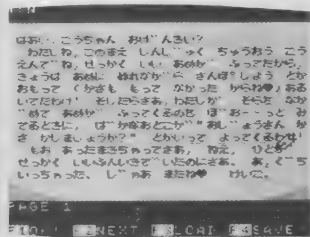 はあい、こうちゃん おげんきい?
わたしね、このまえ しんじゅく ちゅうおう こう
えんでね、せっかく いい あめが ふってたから、
きょうは あめに ぬれながら さんぽしよう とか
おもって (かさも もって なかった からね♥) ある
いてたわけ! そしたらさあ、わたしが そらを なが
めて あめが ふってくるのを ぼおーっと み
てるときに、ばかなおとこが "おじょうさん か
さ かしましょうか?" とかいって よってくるわけ!
もお あったまきちゃってさあ、ねえ、ひどい
せっかく いいふんいきで いたのにさあ。あ、ぐち
いっちゃった、じゃあ またね♥ けいこ。
PAGE 1
NEXT LOAD SAVE